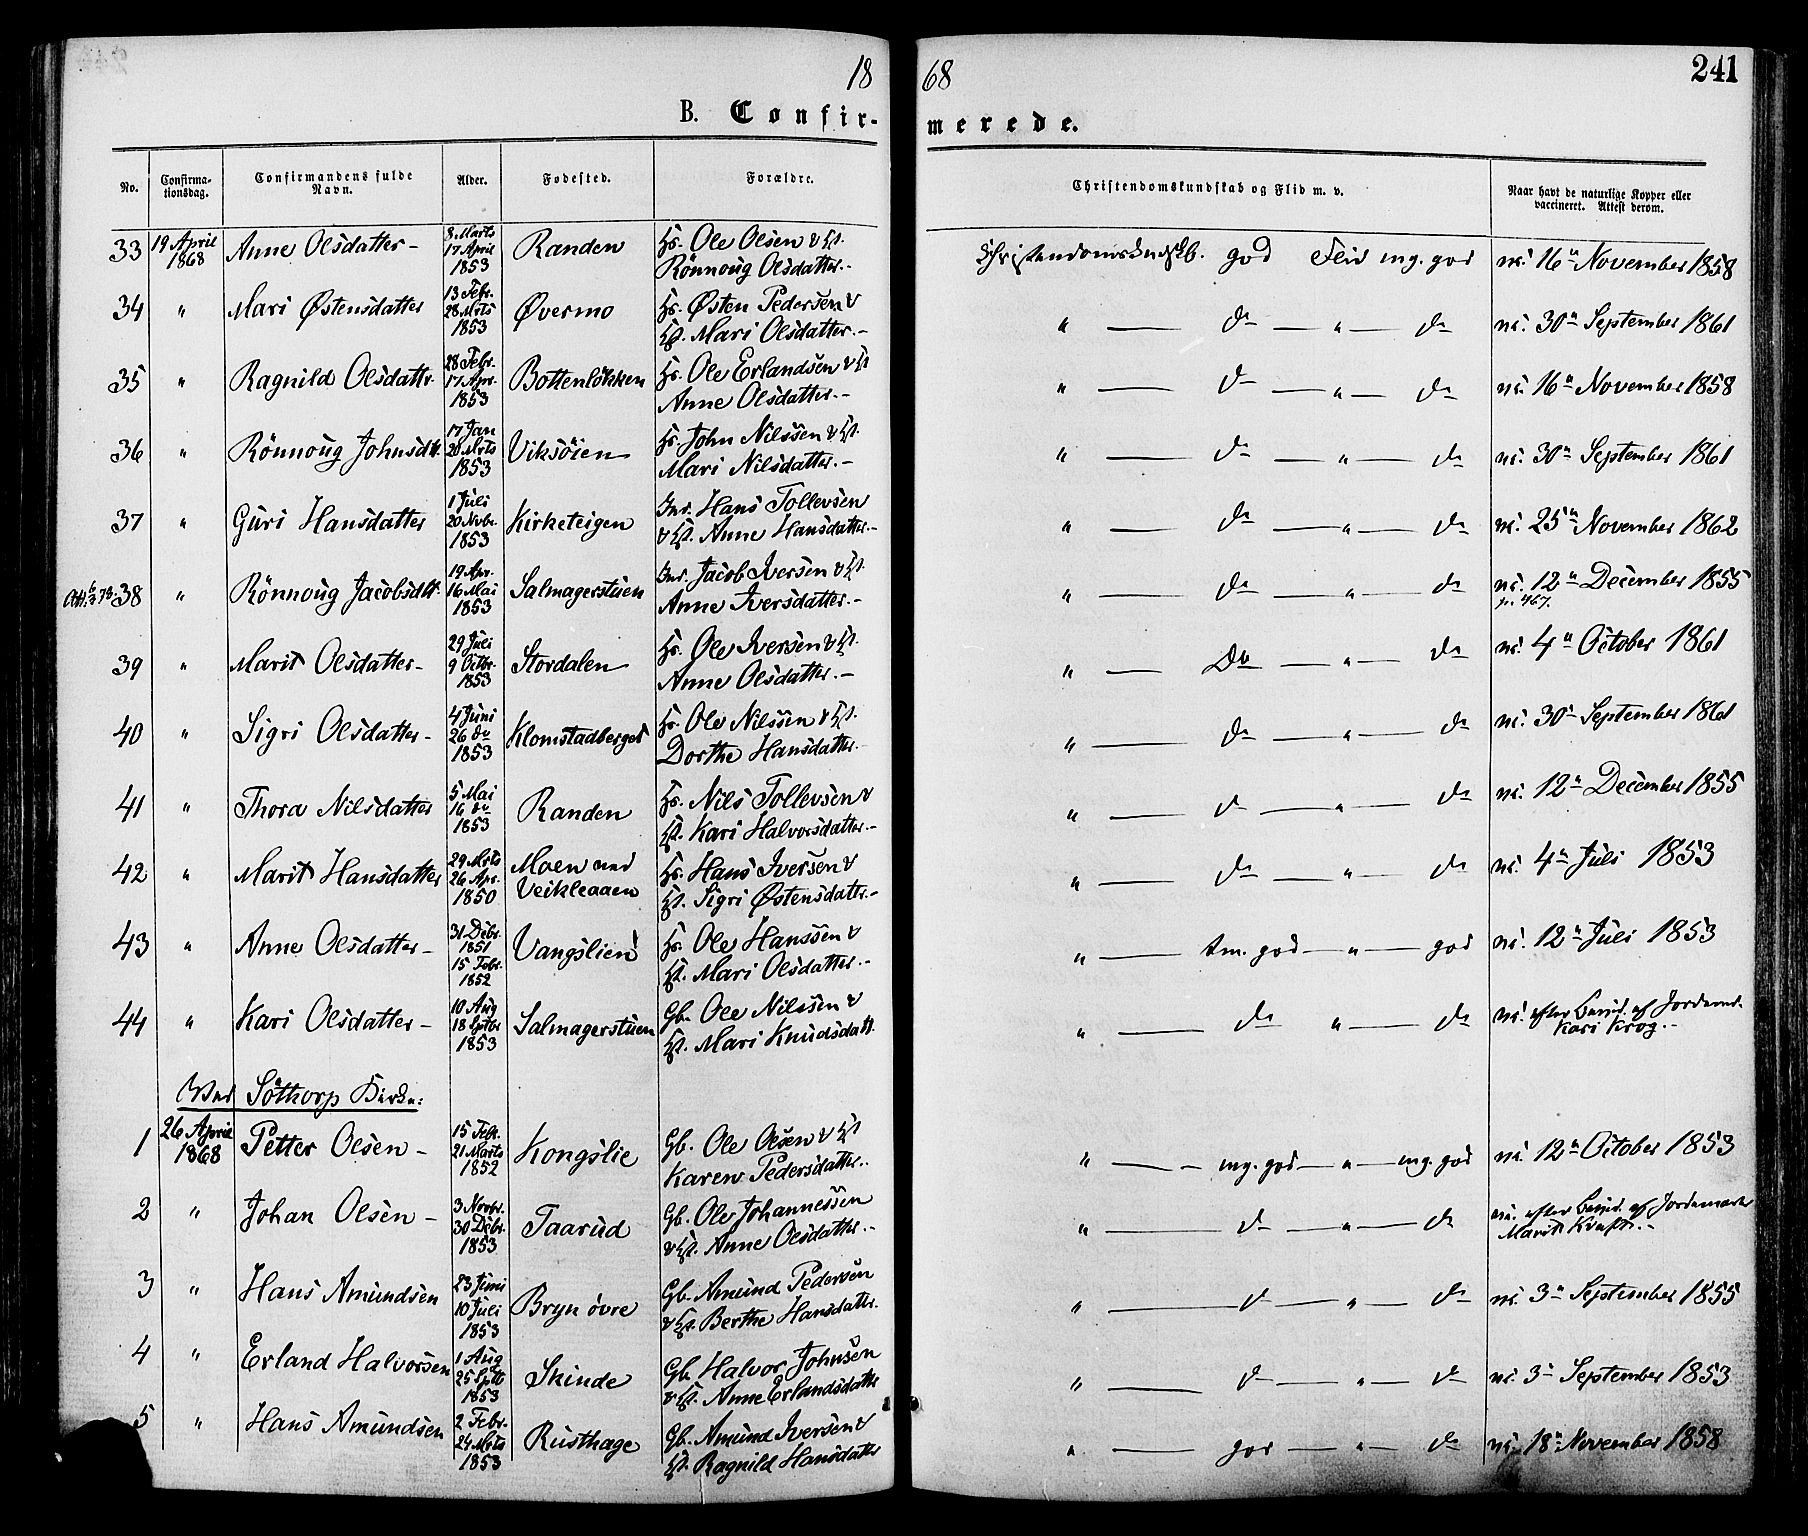 18 68 241
B. Confir- merede.
No. Confirma-tionsdag. Confirmandens fulde Navn. Alder. Fødested. Forældre. Christendomskundskab og Flid m. v. Naar havt de naturlige Kopper eller vaccineret. Attest derom.
33 19 April 1868 Anne Olsdatter - 8 Marts 17 April 1853 Randen Hs. Ole Olsen & Hst. Rönnoug Olsdatter.- Christendomskndskb. god Flid mg. god vc. 16de November 1858
34 " Mari Østensdatter 13 Febr. 28 Mrts 1853 Øvermo Hs. Østen Pedersen & Hst. Mari Olsdatter.- " — do — " — do vc. 30de September 1861
35 " Ragnild Olsdattr. 28 Febr. 17 Apr. 1853 Bottenlökken Hs. Ole Erlandsen & Hst Anne Olsdatter.- " — do — " — do vc. 16de November 1858
36 " Rönnoug Johnsdtr. 17 Jan 20 Mrts 1853 Viksöien Hs. John Nilssen & Hst. Mari Nilsdatter.- " — do — " — do vc. 30de September 1861
37 " Guri Hansdatter 1 Juli 20 Novbr. 1853 Kirketeigen Inr. Hans Tollevsen & Hst. Anne Hansdatter.- " — do — " — do vc. 25de November 1862
38 " Rönnoug Jacobsdtr. 19 Apr. 16 Mai 1853 Salmagerstuen Inr. Jacob Iversen & Hst. Anne Iversdatter.- " — do — " — do vc. 12de December 1855 p. 467.
39 " Marit Olsdatter - 29 Juli 9 Octbr. 1853 Stordalen Hs. Ole Iversen & Hst. Anne Olsdatter.- " — Do — " — do vc. 4de October 1861
40 " Sigri Olsdatter - 4 Juni 26 do 1853 Klomstadberget Hs. Ole Nilssen & Hst. Dorthe Hansdatter.- " — do — " — do vc. 30te September 1861
41 " Thora Nilsdatter 5 Mai 16 do 1853 Randen Hs. Nils Tollevsen & Hst. Kari Halvorsdatter.- " — do — " — do vc. 12de December 1855
42 " Marit Hansdatter 29 Mrts 26 Apr. 1850 Moen ved Veikleaaen Hs. Hans Iversen & Hst. Sigri Østensdattr.- " — do — " — do vc. 4de Juli 1853
43 " Anne Olsdatter - 31 Debr. 1851 15 Febr. 1852 Vangslien Hs. Ole Hanssen & Hst. Mari Olsdatter.- " — tm. god — " — god vc. 12de Juli 1853
44 " Kari Olsdatter - 10 Aug 18 Sptbr 1853 Salmagerstuen Gb. Ole Nilssen & Hst. Mari Knudsdatt. " — do " — do vc. efter Bevid. af Jordemd. Kari Krog.-
Ved Söthorp Kirke:
1 26 April 1868 Petter Olsen - 15 Febr. 21 Marts 1852 Kongslie Gb. Ole Olsen & Hst Karen Pedersdatter.. " — mg. god — " — mg. god vc. 12te October 1853
2 " Johan Olsen - 3 Novbr. 30 Debr. 1853 Taarud Gb. Ole Johannessen & Hst. Anne Olsdatter.- " — do — " — do vc. efter Bevid. af Jordemoder Marit Kraft.-
3 " Hans Amundsen 23 Juni 10 Juli 1853 Bryn övre Gb. Amund Pedersen & Hst. Berthe Hansdatter. " — do — " — do vc. 3de September 1855
4 " Erland Halvorsen 1 Aug 25 Sptb 1853 Skinde Gb. Halvor Johnsen & Hst. Anne Erlandsdatter " — do — " — do vc. 3de September 1853
5 " Hans Amundsen 2 Febr. 24 Mrts 1853 Rusthage Gb. Amund Iversen & Hst. Ragnild Hansdatter " — god — " — do vc. 18de November 1858